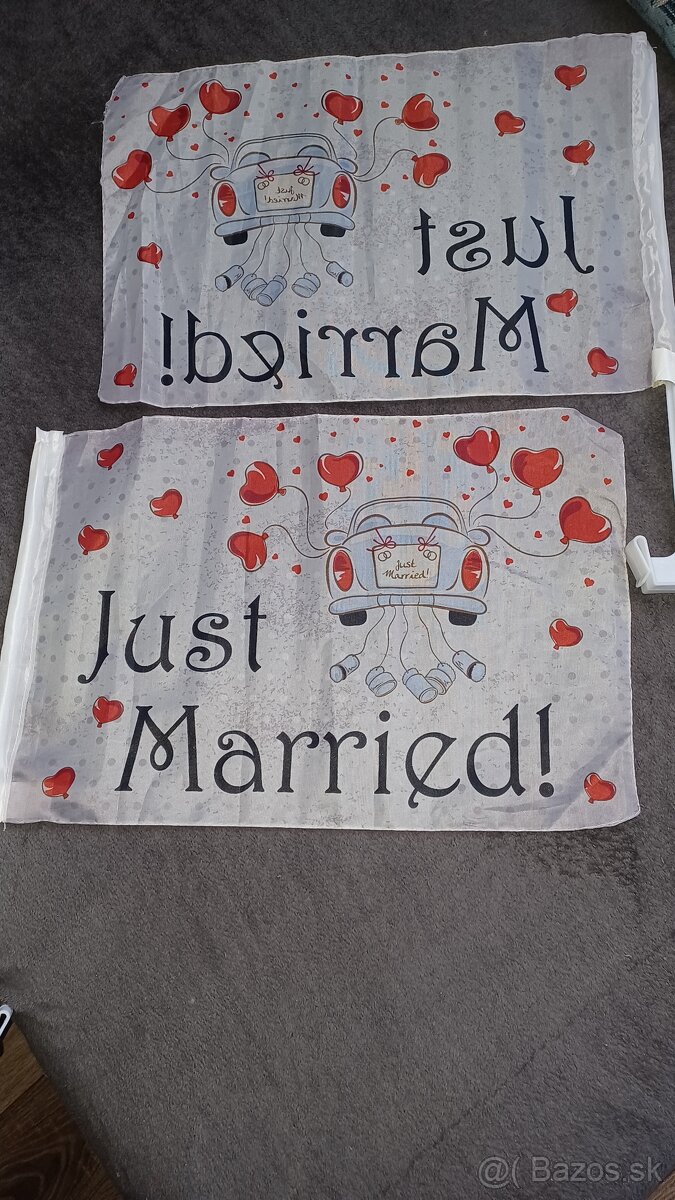 Just
Married!
Just
Married!
Just
Married!
Just
Married!
@( Bazos.sk